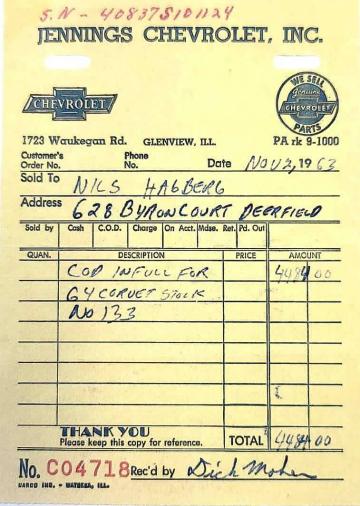 S.N - 40837S101124
JENNINGS CHEVROLET, INC.
CHEVROLET
WE SELL Genuine CHEVROLET PARTS
1723 Waukegan Rd. GLENVIEW, ILL. PA rk 9-1000
Customer's Order No. Phone No. Date NOV 2, 1963
Sold To NILS HAGBERG
Address 628 BYRON COURT DEERFIELD
Sold by Cash C.O.D. Charge On Acct. Mdse. Ret. Pd. Out
QUAN. DESCRIPTION PRICE AMOUNT
COD IN FULL FOR 4484 00
64 CORVET STOCK
NO 133
THANK YOU
Please keep this copy for reference. TOTAL 4484.00
No. C04718 Rec'd by Dick
VARCO INC. - WATSEKA, ILL.